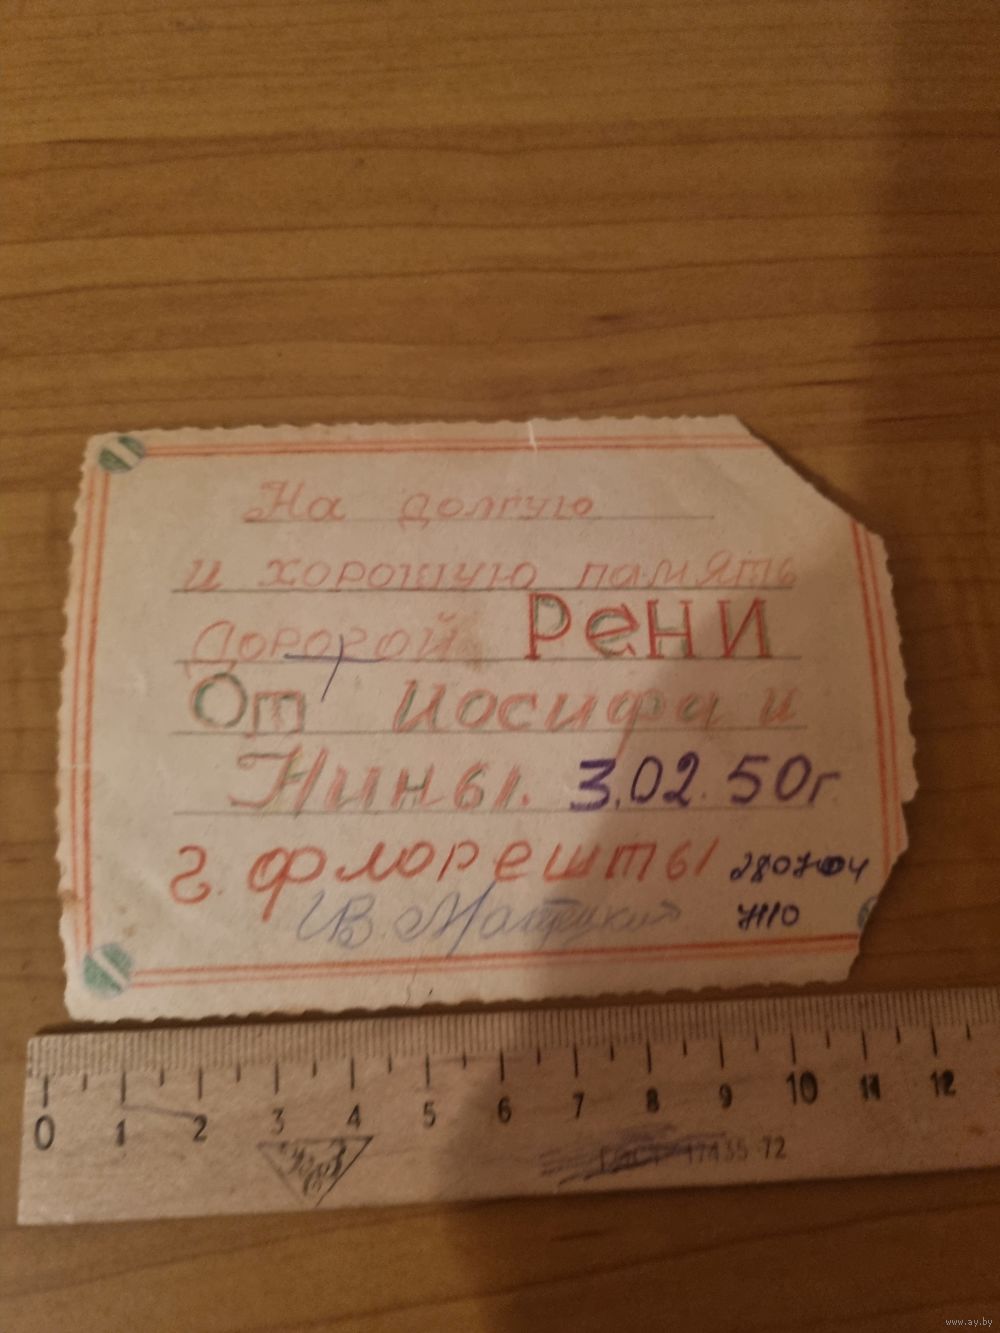 На долгую
и хорошую память
дорогой Рени
От Иосифа и
Нины. 3.02.50г
г. флорешты
7110
0 1 2 3 4 5 6 7 8 9 10 11 12
ГОСТ 17435-72
www.ay.by